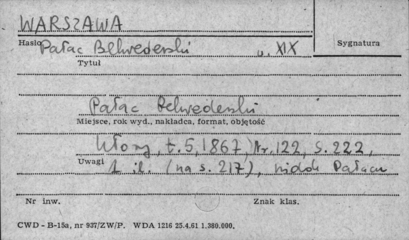 WARSZAWA
Hasło Pałac Belwederski w. XIX Sygnatura
Tytuł
Pałac Belwederski
Miejsce, rok wyd., nakładca, format, objętość
Kłosy, t. 5, 1867, Nr. 122, s. 222,
Uwagi 1 il. (na s. 217), widok Pałacu
Nr inw. Znak klas.
CWD - B-15a, nr 937/ZW/P. WDA 1216 25.4.61 1.380.000.